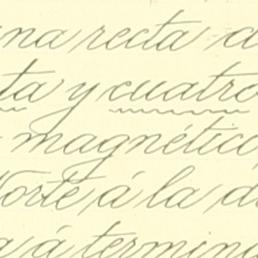 una recta a
ta y cuatro
magnético
Norte á la d
a á termina